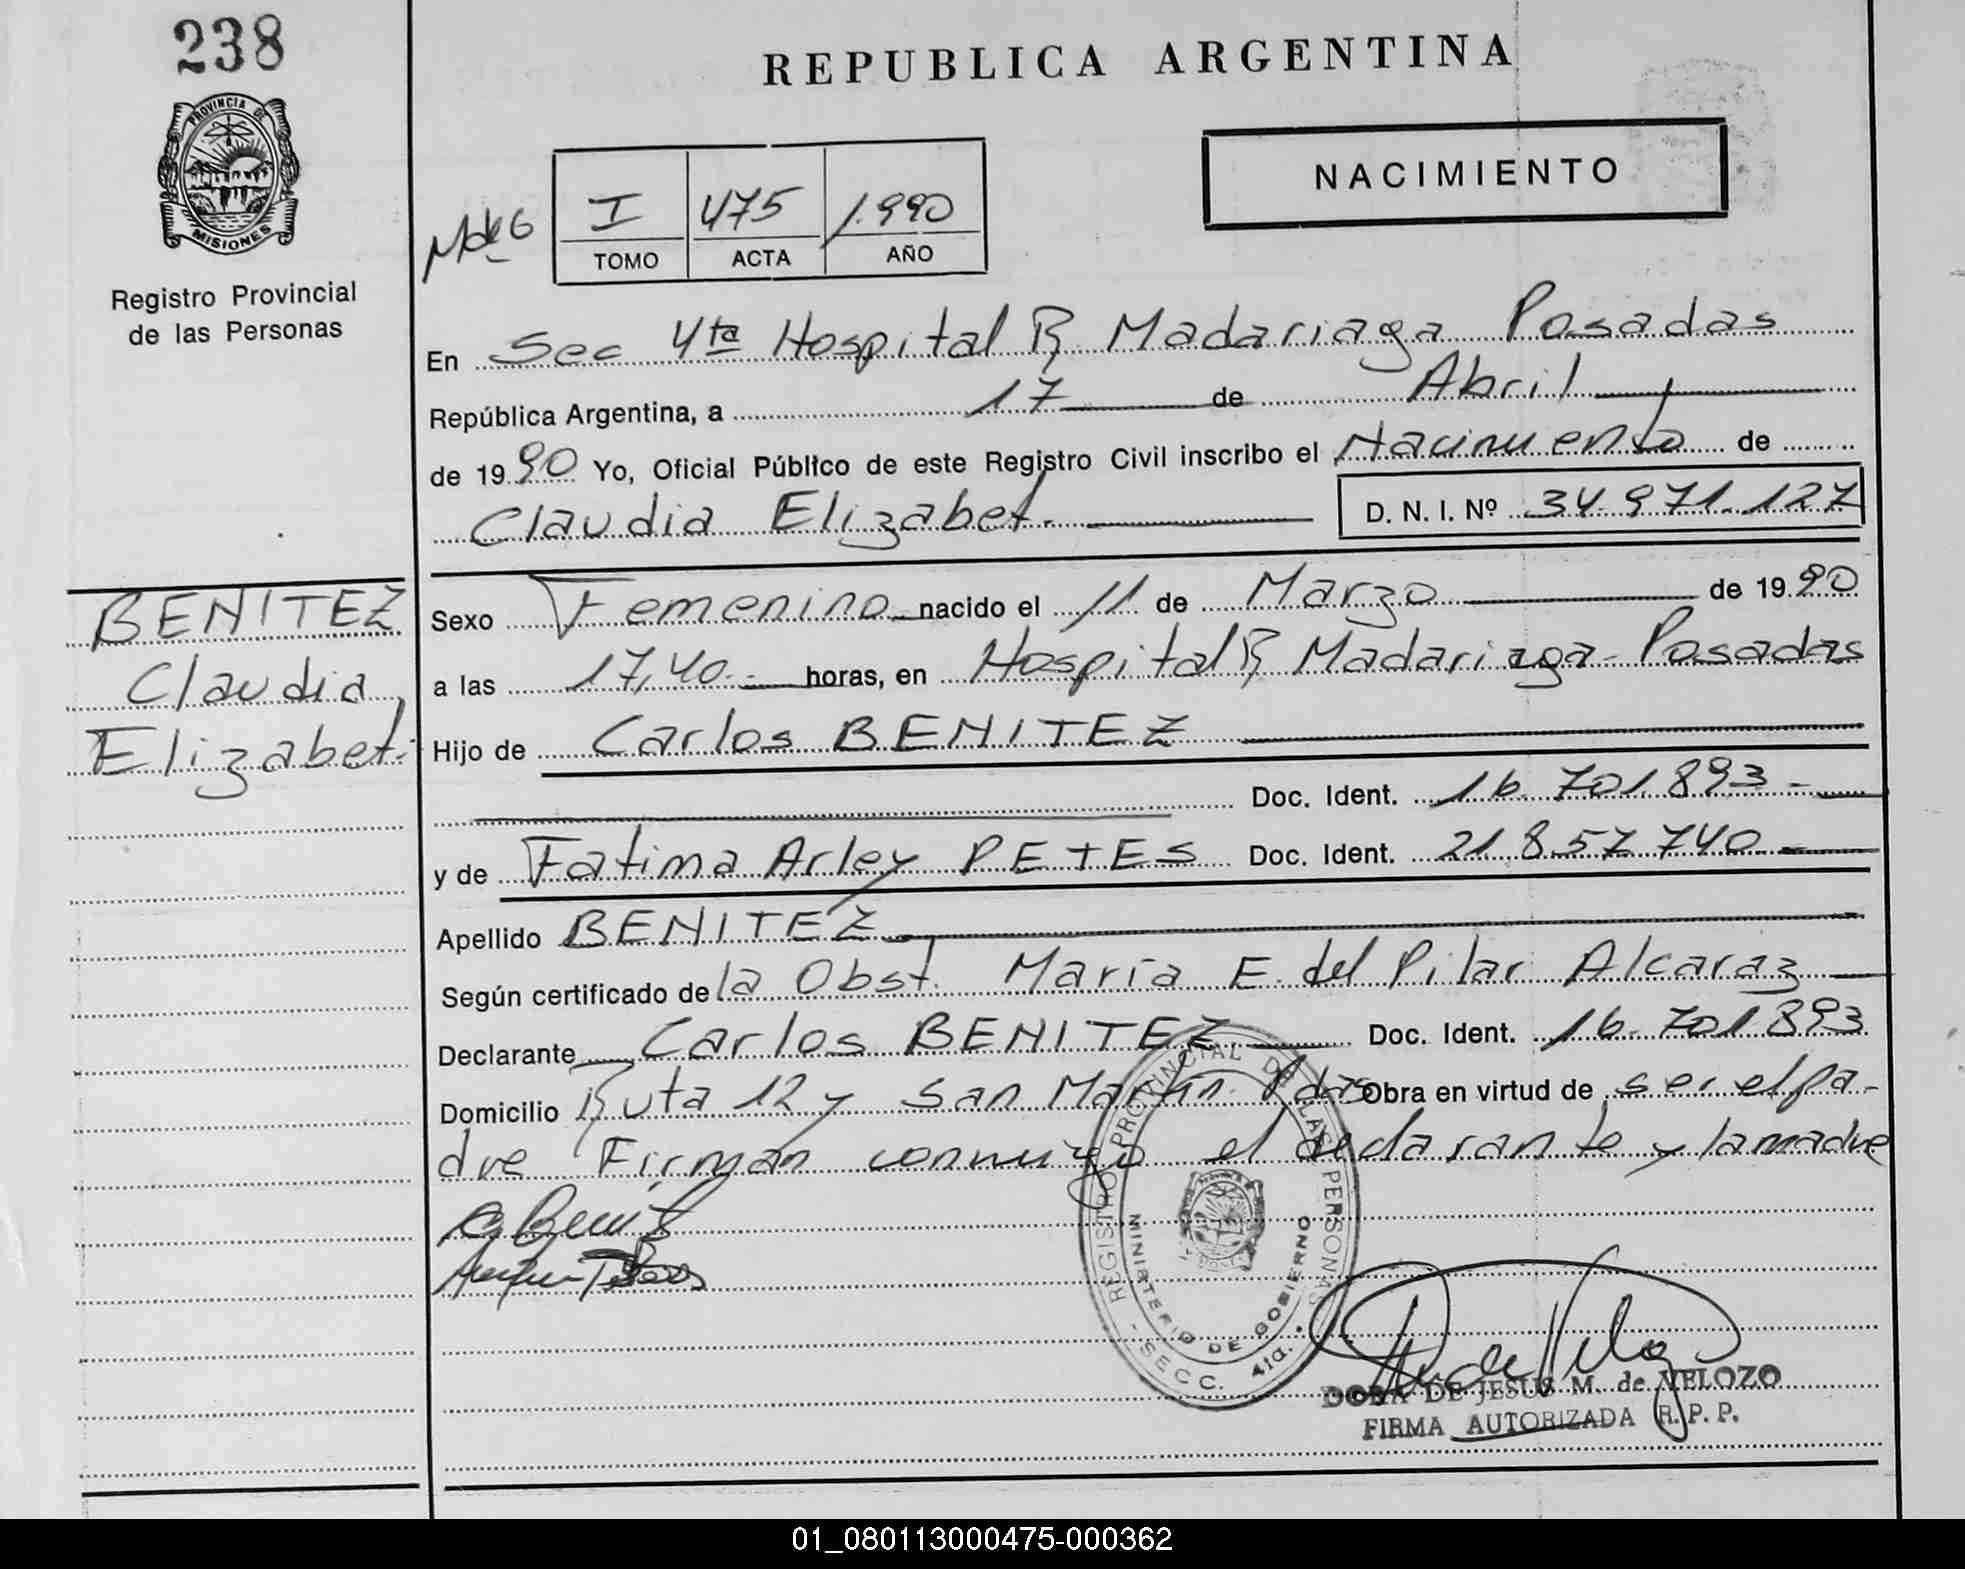 238
REPUBLICA ARGENTINA
PROVINCIA DE
MISIONES
Registro Provincial
de las Personas
NACIMIENTO
I 475 1.990
TOMO ACTA AÑO
En Sec 4ta Hospital R. Madariaga Posadas
República Argentina, a 17 de Abril
de 1990 Yo, Oficial Público de este Registro Civil inscribo el Nacimiento de
Claudia Elizabet. D. N. I. Nº 34.971.127
BENITEZ
Claudia
Elizabet.
Sexo Femenino nacido el 11 de Marzo de 1990
a las 17,40 horas, en Hospital R. Madariaga - Posadas
Hijo de Carlos BENITEZ
Doc. Ident. 16.701893-
y de Fatima Arley PETES Doc. Ident. 21.857.740-
Apellido BENITEZ
Según certificado de la Obst. María E. del Pilar Alcaraz
Declarante Carlos BENITEZ Doc. Ident. 16.701893
Domicilio Ruta 12 y San Martin. Pdas Obra en virtud de ser el pa-
dre Firman conmigo el declarante y la madre
REGISTRO PROVINCIAL DE LAS PERSONAS
MINISTERIO DE GOBIERNO
- SECC. 4ta. -
DORA DE JESUS M. de VELOZO
FIRMA AUTORIZADA R. P. P.
01_080113000475-000362